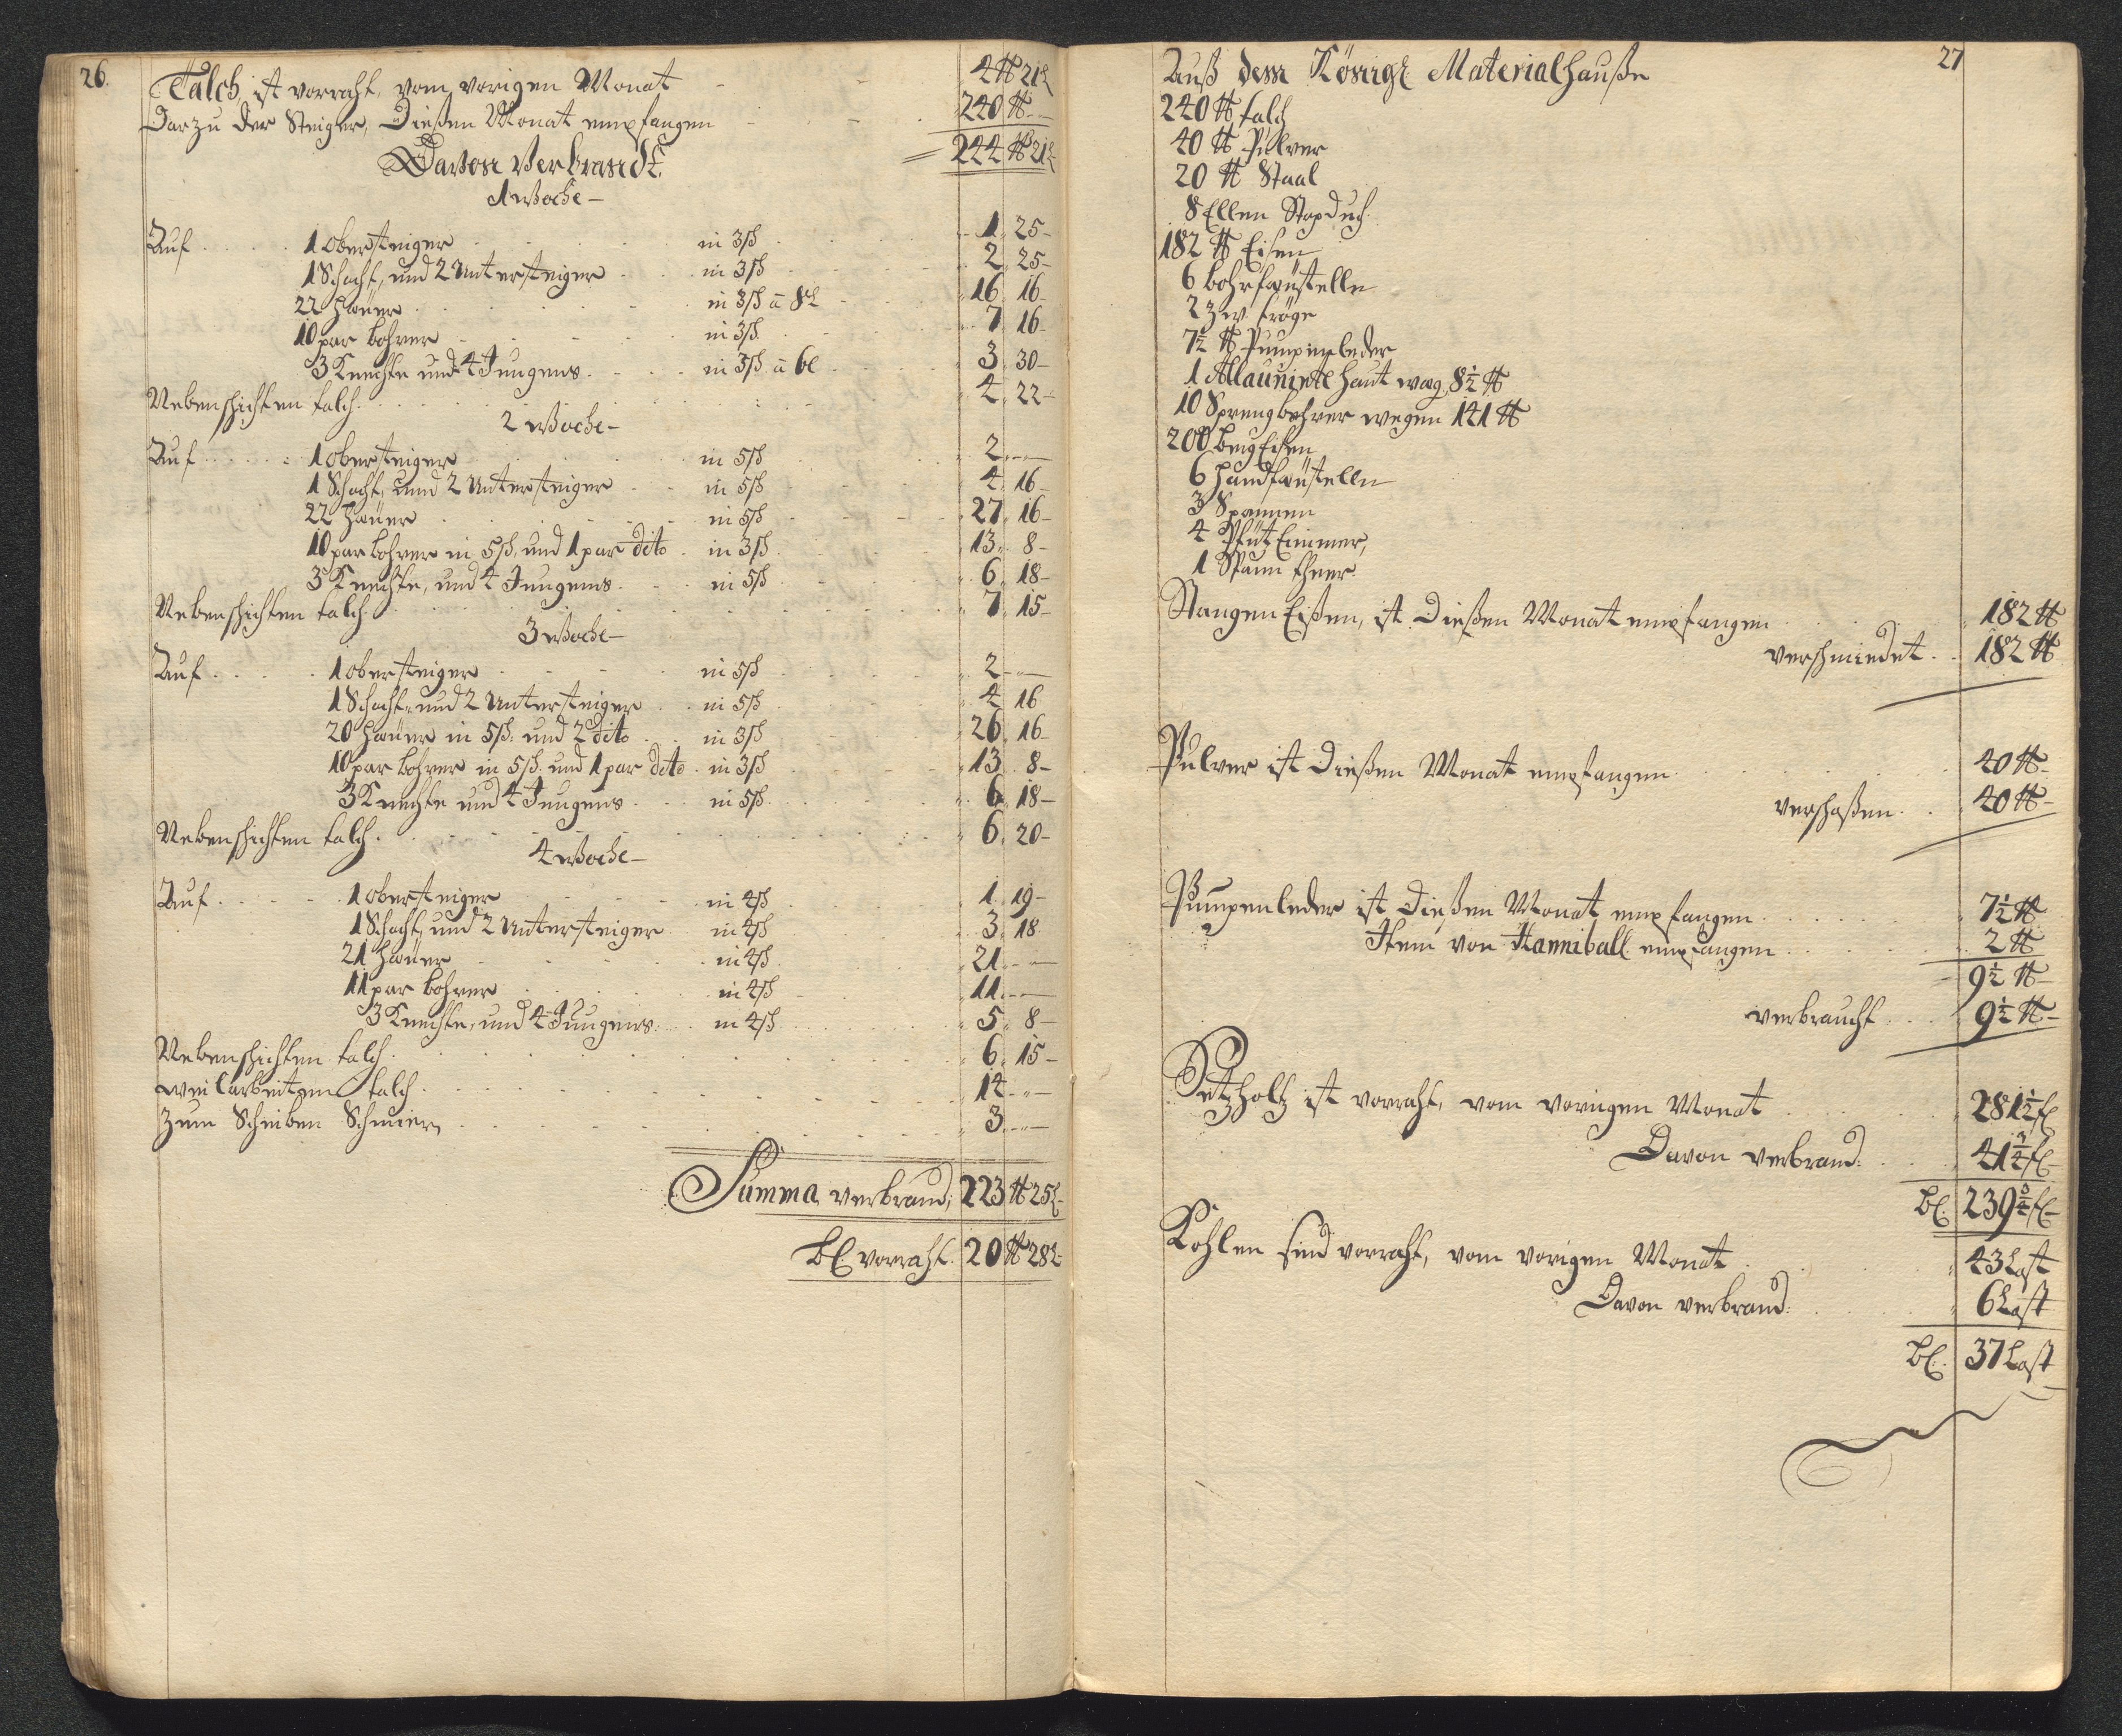 26.
Talch ist vorraht, vom vorigen Monat - 4 ℔ 21 L
Darzu der Steiger, Dießen Monat empfangen - - - 240 ℔ -
Davon Verbrandt. = 244 ℔ 21 L
1 Woche -
Auf . . . . 1 obersteiger . . . in 3 sch . . . 1. 25 -
1 Schacht, und 2 Untersteiger . . . in 3 sch . . . 2. 25 -
22 Häuer . . . in 3 sch a 8 L . . . 16. 16 -
10 par bohrer . . . in 3 sch . . . 7. 16 -
3 Knechte und 4 Jungens . . . in 3 sch a 6 L . . . 3. 30 -
Nebenschichten talch . . . 4. 22 -
2 Woche -
Auf . . . . 1 obersteiger . . . in 5 sch . . . 2. -
1 Schacht, und 2 Untersteiger . . . in 5 sch . . . 4. 16 -
22 Häuer . . . in 5 sch . . . 27. 16 -
10 par bohrer in 5 sch, und 1 par dito . in 3 sch . . . 13. 8 -
3 Knechte, und 4 Jungens . . . in 5 sch . . . 6. 18 -
Nebenschichten talch . . . 7. 15 -
3 Woche -
Auf . . . . 1 obersteiger . . . in 5 sch . . . 2 -
1 Schacht, und 2 Untersteiger . . in 5 sch . . . 4 16
20 Häuer in 5 sch. und 2 dito . . in 3 sch . . . 26. 16 -
10 par bohrer in 5 sch. und 1 par dito . in 3 sch . . . 13. 8 -
3 Knechte und 4 Jungens . . . in 5 sch . . . 6. 18 -
Nebenschichten talch . . . 6. 20 -
4 Woche -
Auf . . . . 1 obersteiger . . . in 4 sch . . . 1. 19 -
1 Schacht, und 2 Untersteiger . . in 4 sch . . . 3. 18
21 Häuer . . . in 4 sch . . . 21. -
11 par bohrer . . . in 4 sch . . . 11. -
3 Knechte, und 4 Jungens . . . in 4 sch . . . 5. 8 -
Nebenschichten talch . . . 6. 15 -
weilarbeiten talch . . . 14. -
zum Scheiben Schmier, . . . 3. -
Summa verbrand; 223 ℔ 25 L -
bl. vorraht. 20 ℔ 28 L -
27
Auß dem Königl. Materialhauße
240 ℔ talch
40 ℔ Pulver
20 ℔ Staal
8 Ellen Stopduch.
182 ℔ Eisen
6 bohrfäustelln
2 zw. tröge
7½ ℔ Pumpenleder
1 haut wog 8½ ℔
10 Sprengbohrer wegen 141 ℔
200 bergEisen
6 handfäustelln
3 Spannen
4 PfützEimmer,
1 Spann theer.
Stangen Eißen, ist Dießen Monat empfangen . . . 182 ℔
verschmiedet . . 182 ℔
Pulver ist Dießen Monat empfangen . . . 40 ℔ -
verschoßen . . 40 ℔ -
Pumpenleder ist Dießen Monat empfangen . . . 7½ ℔
Item von Hanniball empfangen . . . 2 ℔
9½ ℔ -
verbraucht . . . 9½ ℔ -
Setzholtz ist vorraht, vom vorigen Monat . . . 281½ f
Davon verbrand: . . . 41¾ f -
bl. 239¾ f -
Kohlen sind vorraht, vom vorigen Monat . . . 43 Last
Davon verbrand: . . . 6 Last
bl. 37 Last